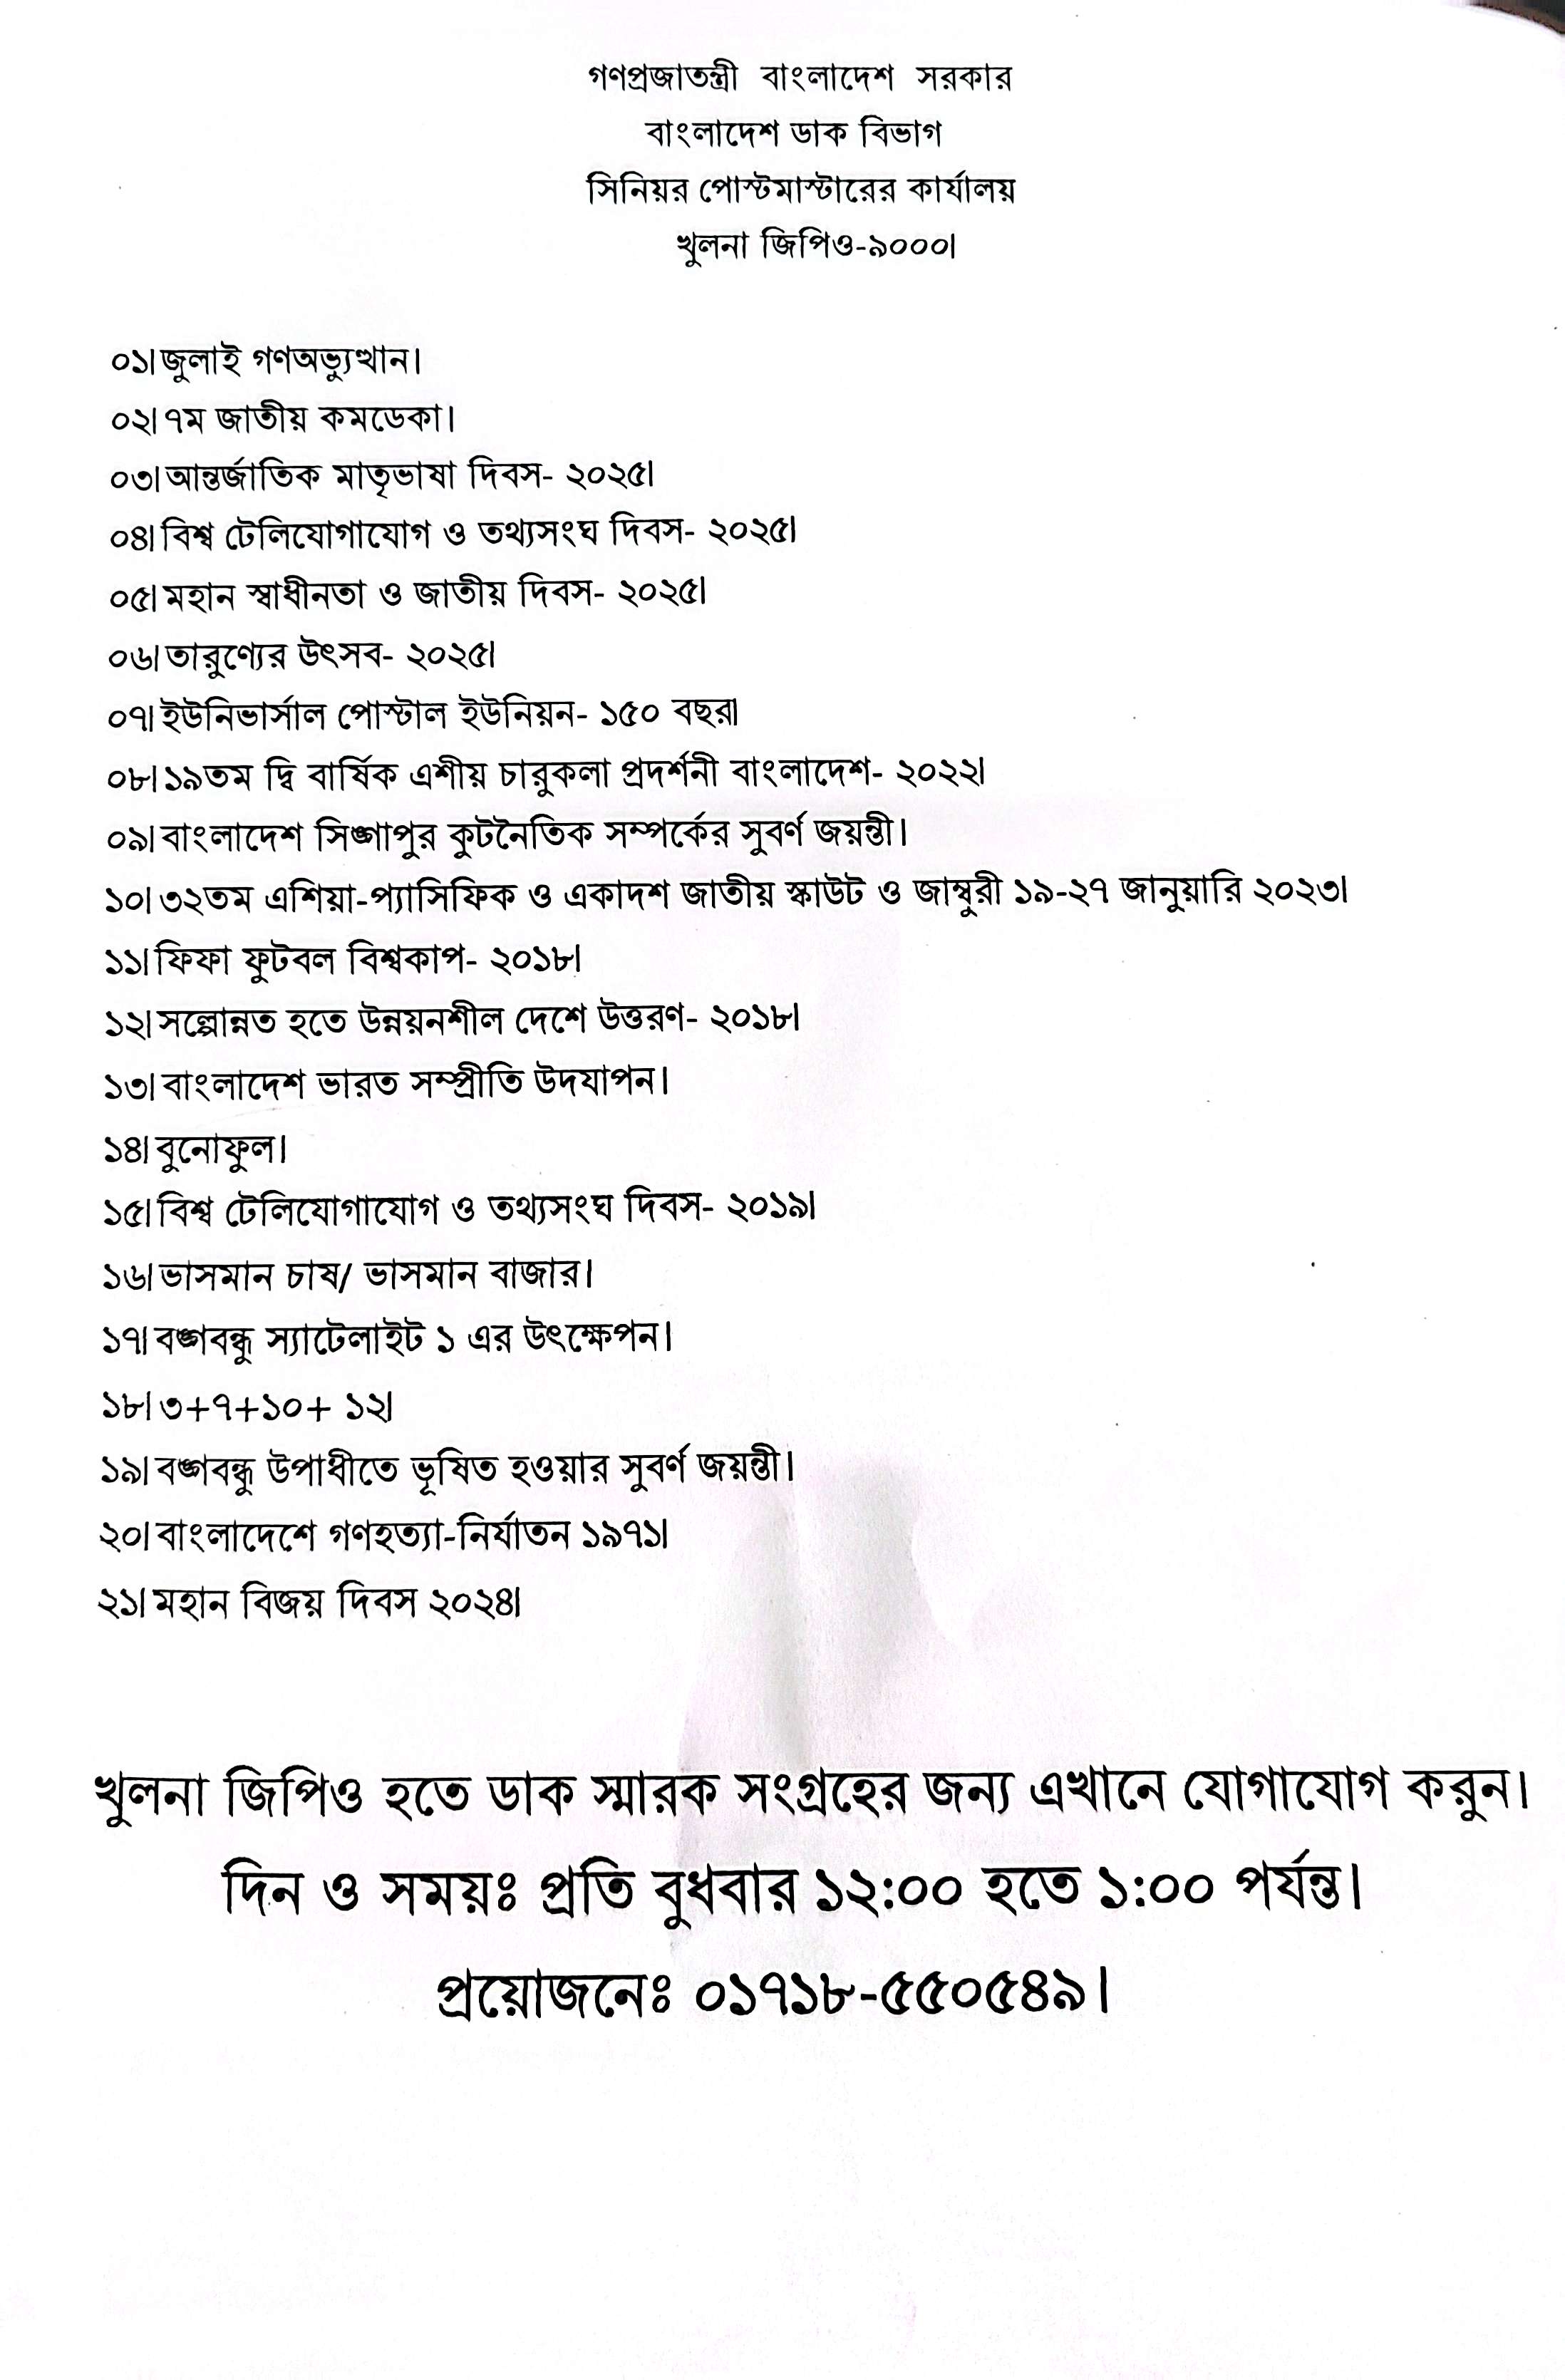 গণপ্রজাতন্ত্রী বাংলাদেশ সরকার
বাংলাদেশ ডাক বিভাগ
সিনিয়র পোস্টমাস্টারের কার্যালয়
খুলনা জিপিও-৯০০০।
০১। জুলাই গণঅভ্যুত্থান।
০২। ৭ম জাতীয় কমডেকা।
০৩। আন্তর্জাতিক মাতৃভাষা দিবস- ২০২৫।
০৪। বিশ্ব টেলিযোগাযোগ ও তথ্যসংঘ দিবস- ২০২৫।
০৫। মহান স্বাধীনতা ও জাতীয় দিবস- ২০২৫।
০৬। তারুণ্যের উৎসব- ২০২৫।
০৭। ইউনিভার্সাল পোস্টাল ইউনিয়ন- ১৫০ বছর।
০৮। ১৯তম দ্বি বার্ষিক এশীয় চারুকলা প্রদর্শনী বাংলাদেশ- ২০২২।
০৯। বাংলাদেশ সিঙ্গাপুর কুটনৈতিক সম্পর্কের সুবর্ণ জয়ন্তী।
১০। ৩২তম এশিয়া-প্যাসিফিক ও একাদশ জাতীয় স্কাউট ও জাম্বুরী ১৯-২৭ জানুয়ারি ২০২৩।
১১। ফিফা ফুটবল বিশ্বকাপ- ২০১৮।
১২। সল্পোন্নত হতে উন্নয়নশীল দেশে উত্তরণ- ২০১৮।
১৩। বাংলাদেশ ভারত সম্প্রীতি উদযাপন।
১৪। বুনোফুল।
১৫। বিশ্ব টেলিযোগাযোগ ও তথ্যসংঘ দিবস- ২০১৯।
১৬। ভাসমান চাষ/ ভাসমান বাজার।
১৭। বঙ্গবন্ধু স্যাটেলাইট ১ এর উৎক্ষেপন।
১৮। ৩+৭+১০+ ১২।
১৯। বঙ্গবন্ধু উপাধীতে ভূষিত হওয়ার সুবর্ণ জয়ন্তী।
২০। বাংলাদেশে গণহত্যা-নির্যাতন ১৯৭১।
২১। মহান বিজয় দিবস ২০২৪।
খুলনা জিপিও হতে ডাক স্মারক সংগ্রহের জন্য এখানে যোগাযোগ করুন।
দিন ও সময়ঃ প্রতি বুধবার ১২:০০ হতে ১:০০ পর্যন্ত।
প্রয়োজনেঃ ০১৭১৮-৫৫০৫৪৯।